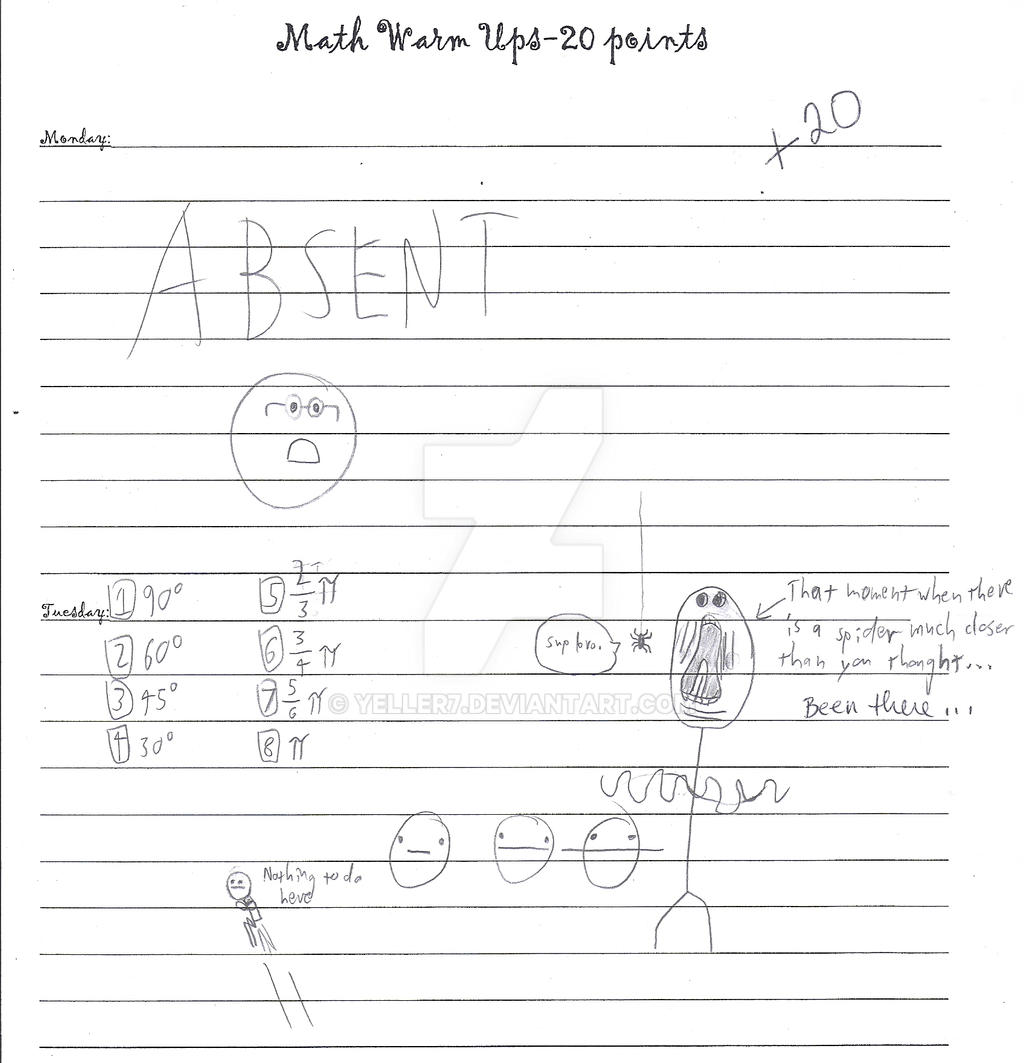 Math Warm Ups-20 points
+20
Monday:
ABSENT
Tuesday:
1 90°
2 60°
3 45°
4 30°
5 2/3 π
6 3/4 π
7 5/6 π
8 π
sup bro.
That moment when there
is a spider much closer
than you thought...
Been there...
© YELLER7.DEVIANTART.COM
Nothing to do
here